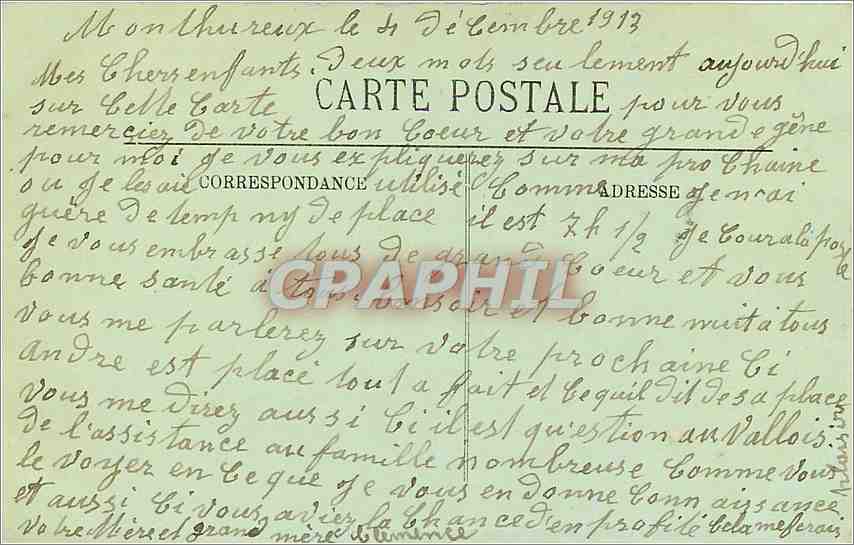 Monthureux le 4 décembre 1913
Mes Chers enfants. Deux mots seulement aujourd'hui
sur Cette Carte
CARTE POSTALE
pour vous
remerciez de votre bon Coeur et votre grande gêne
pour moi je vous expliquerez sur ma prochaine
ou je les ai
CORRESPONDANCE
utilisé Comme
ADRESSE
je n'ai
guère de temp ny de place il est 7h 1/2 je Cour a la poste
je vous embrasse tous de grand Coeur et vous
bonne santé à tous bonsoir et bonne nuit a tous
CPAPHIL
vous me parlerez sur votre prochaine Ci
André est placé tout a fait et Ce quil dit de sa place
vous me direz aussi Ci il est question au Vallois
de l'assistance au famille nombreuse Comme vous
le voyer en Ce que je vous en donne Connaissance
et aussi Ci vous aviez la Chance d'en profité Cela me ferais
plaisir
votre Mère et grand mère Clemence